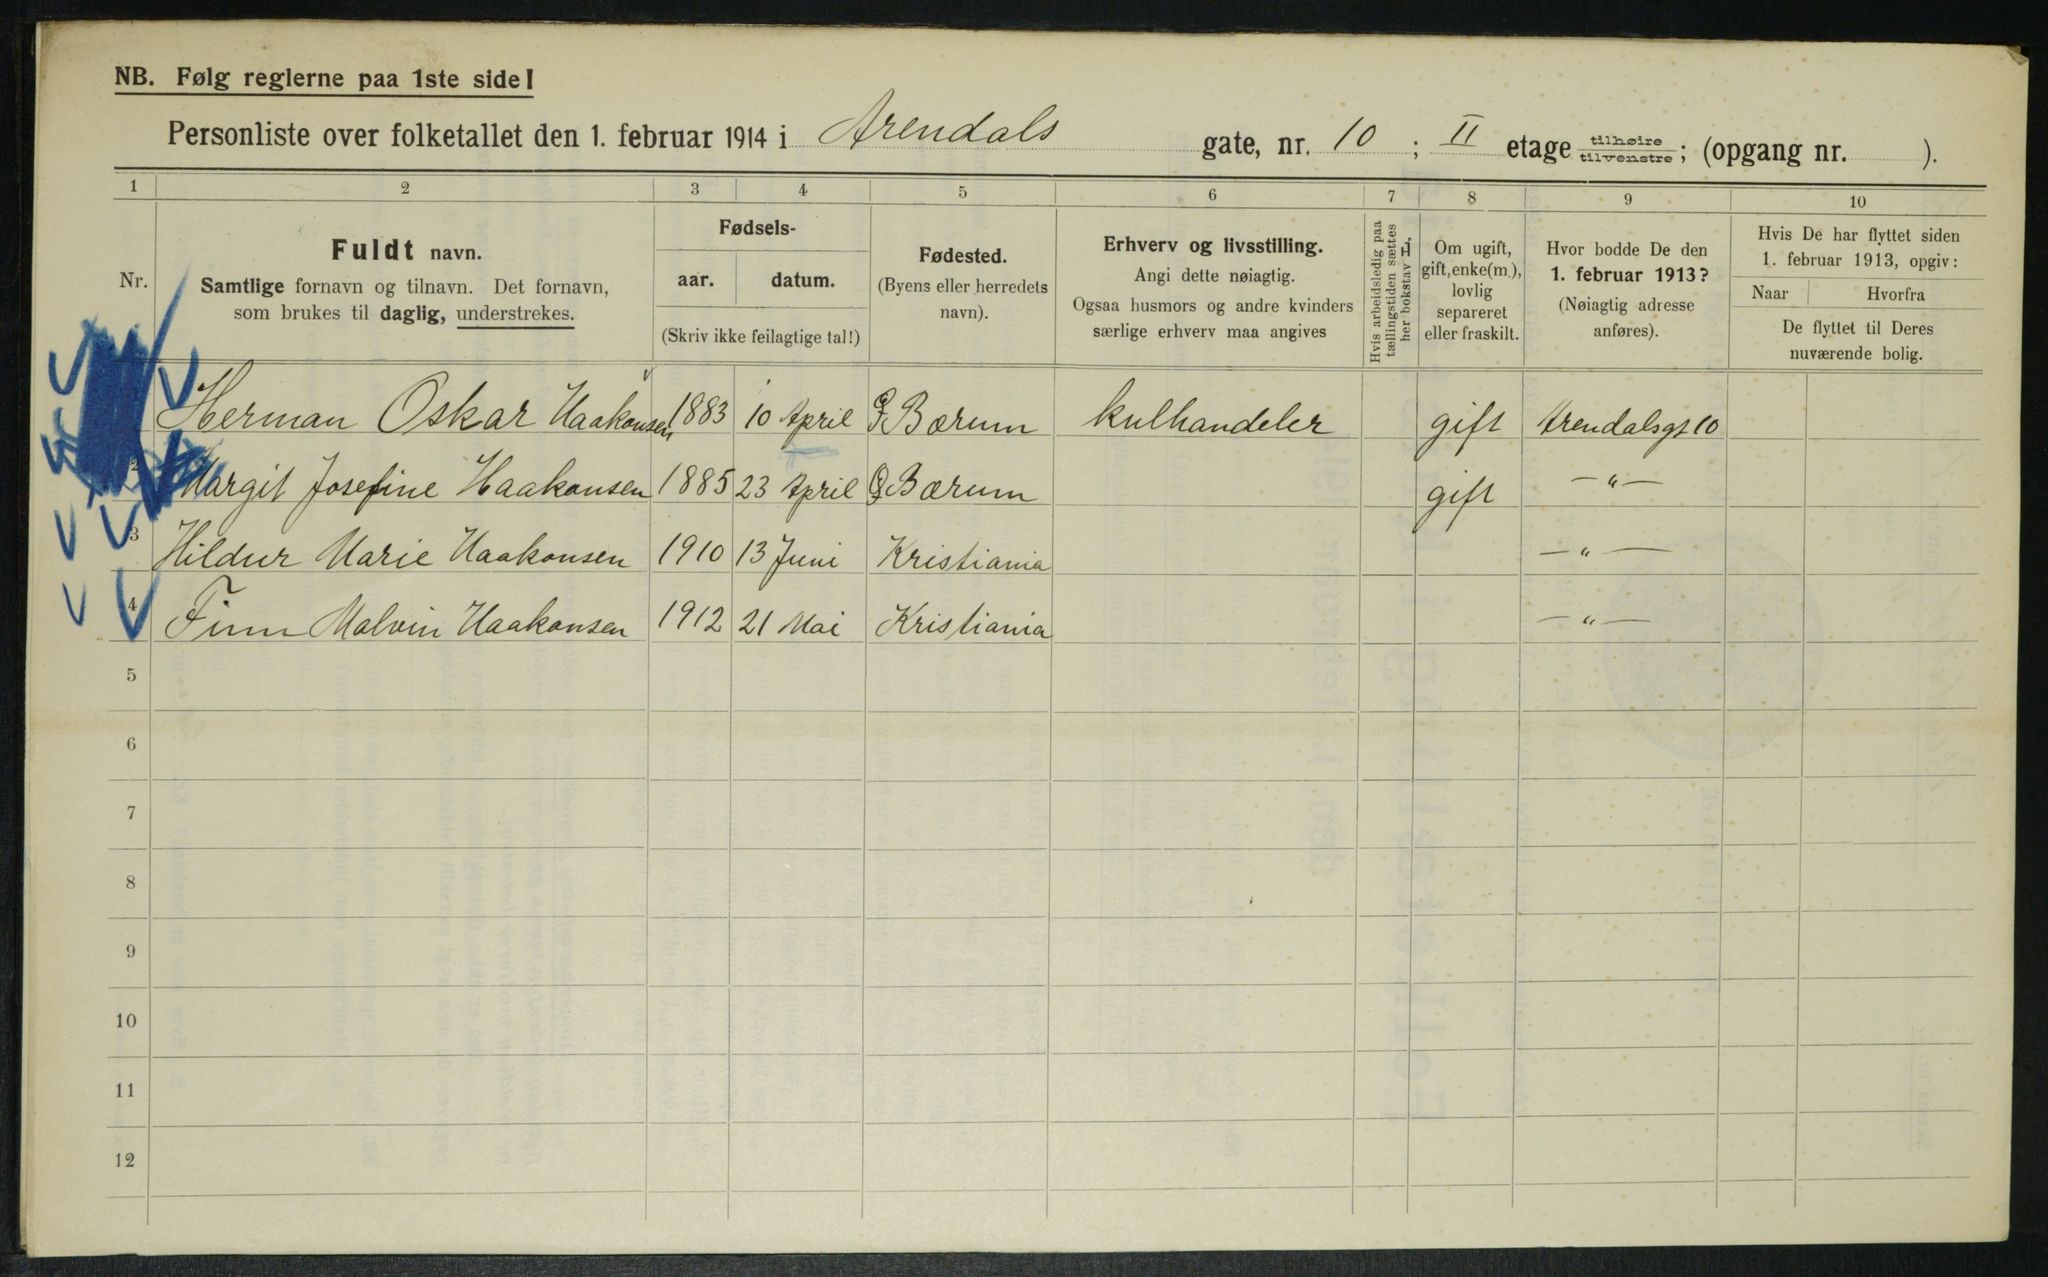 NB. Følg reglerne paa 1ste side!
Personliste over folketallet den 1. februar 1914 i Arendals gate, nr. 10 ; II etage tilhøire tilvenstre; (opgang nr. ).
1 2 3 4 5 6 7 8 9 10
Nr.
Fuldt navn.
Samtlige fornavn og tilnavn. Det fornavn,
som brukes til daglig, understrekes.
Fødsels-
aar. datum.
(Skriv ikke feilagtige tal!)
Fødested.
(Byens eller herredets
navn).
Erhverv og livsstilling.
Angi dette nøiagtig.
Ogsaa husmors og andre kvinders
særlige erhverv maa angives
Hvis arbeidsledig paa
tællingstiden sættes
her bokstav H.
Om ugift,
gift, enke(m.),
lovlig
separeret
eller fraskilt.
Hvor bodde De den
1. februar 1913?
(Nøiagtig adresse
anføres).
Hvis De har flyttet siden
1. februar 1913, opgiv:
Naar Hvorfra
De flyttet til Deres
nuværende bolig.
Herman Oskar Haakonsen 1883 10 April Bærum kulhandeler gift Arendalsgt 10
2 Margit Josefine Haakonsen 1885 23 April Bærum gift — " —
3 Hildur Marie Haakonsen 1910 13 Juni Kristiania — " —
4 Finn Malvin Haakonsen 1912 21 Mai Kristiania — " —
5
6
7
8
9
10
11
12